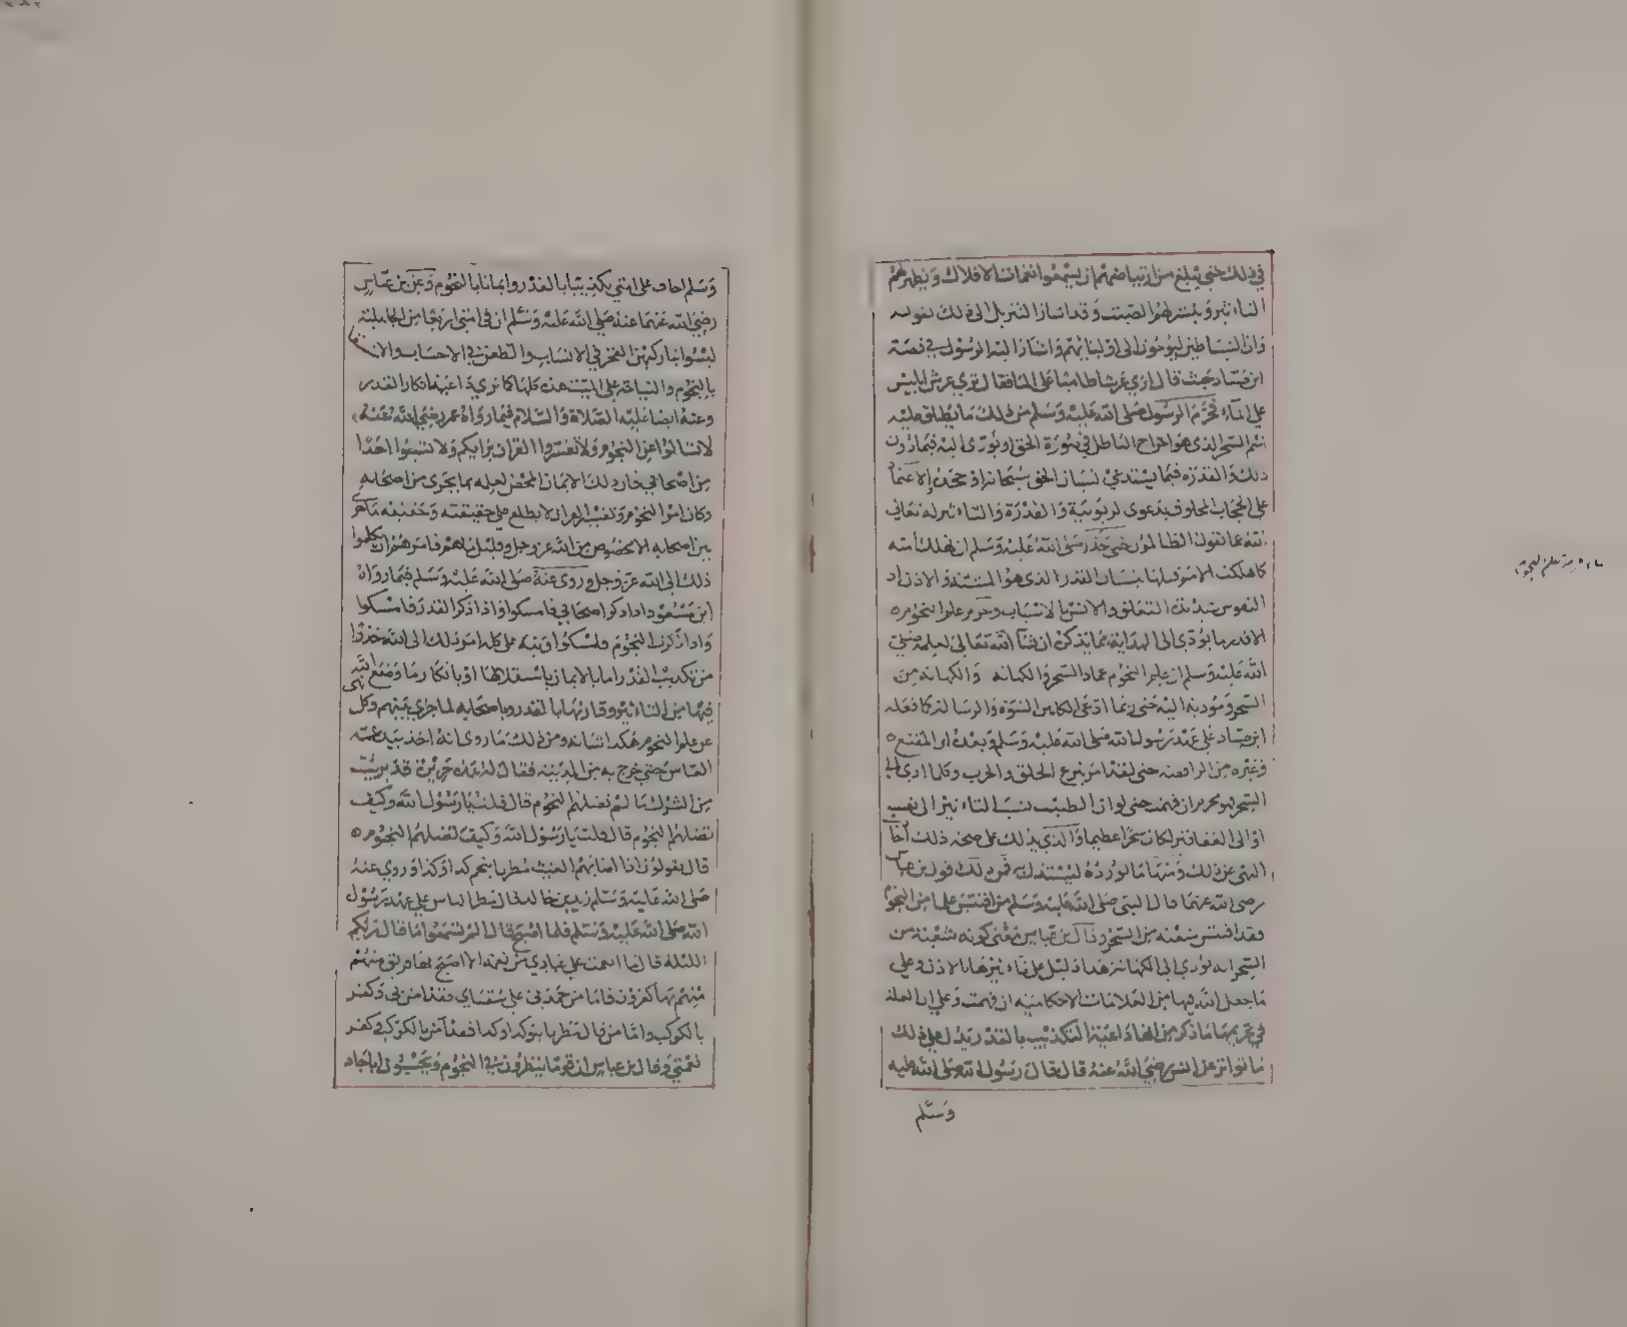 في ذلك حتى يبلغ من ارتياضهم ان يسمعوا نغمات الافلاك ويظهر لهم
التاثير ويلتبس لهم الصيت وقد اشار التنزيل الى ذلك بقوله
وان الشياطين ليوحون الى اوليائهم واشار اليه الرسول في قصة
ابن صياد حيث قال ارى عرشا طافيا على الماء فقال ترى عرش ابليس
على الماء فحرم الرسول صلى الله عليه وسلم من ذلك ما يطلق عليه
اسم السحر الذي هو اخراج الباطل في صورة الحق او يؤدى اليه
ذلك والقدرة فيما يستدعي نسيان الحق سبحانه
على الحجاب المخلوق بدعوى الربوبية والقدرة والتاثير له تعالى
الله عما يقول الظالمون حتى حذر صلى الله عليه وسلم ان تهلك امته
كما هلكت الامم قبلها بنسيان القدر الذي هو المشيئة والاذن
النفوس التعلق والانس بالاسباب وحرم علوم النجوم
الا قدر ما يؤدي الى الهداية بما يذكر ان شاء الله تعالى لعلمه صلى
الله عليه وسلم ان علم النجوم عماد السحر والكهانة والكهانة من
السحر ومؤدية اليه حتى ربما ادعى الكاهن النبوة والرسالة كما فعله
ابن صياد على عهد رسول الله صلى الله عليه وسلم وبعده ابن المقنع
وغيره من الرافضة حتى لقد امر الحلق والحرب وكل ما ادى الى
السحر فهو محرم ان فهمت حتى لو ان الطبيب نسب التاثير الى نفسه
او الى العقاقير لكان سحرا عظيما والذي يدلك على صحة ذلك
النهي عن ذلك ومنها ما نورده ليستدل به فمن ذلك قول بن عباس
رضي الله عنهما قال قال النبي صلى الله عليه وسلم من اقتبس علما من النجوم
فقد اقتبس شعبة من السحر وقال بن عباس معنى كونه شعبة من
السحر انه يؤدي الى الكهانة هذا دليل على الاذن وعلى
ما جعل الله فيها من العلامات الاحكامية ان فهمت وعلى ان العلة
في تحريمها ما ذكر من انها داعية التكذيب بالقدر يدل على ذلك
ما تواتر عن انس رضي الله عنه قال قال رسول الله صلى الله عليه
وسلم
وسلم اخاف على امتي تكذيبا بالقدر وايمانا بالنجوم وعن بن عباس
رضي الله عنهما عنه صلى الله عليه وسلم ان في امتي اربعا من الجاهلية
ليسوا بتاركيهن الفخر في الانساب والطعن في الاحساب والا
بالنجوم والنياحة على الميت هذه كلها كما ترى داعيها انكار القدر
وعنه ايضا عليه الصلاة والسلام فيما رواه عمر رضي الله عنه
لا تسالوا عن النجوم ولا تفسروا القران برايكم ولا تسبوا احدا
من اصحابي فان ذلك الايمان المحض لعلمه بما يجرى من اصحابه
وكان امر النجوم وتفسير القران لا يطلع على حقيقته وحقيقة ما جرى
بين اصحابه الا بخصوص من الله عز وجل وقليل ما هم فامرهم ان يكلوا
ذلك الى الله عز وجل وروى عنه صلى الله عليه وسلم فيما رواه
ابن مسعود اذا ذكر اصحابي فامسكوا واذا ذكر القدر فامسكوا
واذا ذكرت النجوم فامسكوا ونبه على كل امر ذلك الى الله حذرا
من تكذيب القدر اما بالايمان باستقلالها او بانكار ما وضع الله
فيها من التاثير وقارنها بالقدر وباصحابه لما جرى بينهم وكل نهى
عن علم النجوم هكذا شانه ومن ذلك ما روى انه اخذ بيد عمه
العباس حتى خرج به من المدينة فقال ان هذه جزيرة قد بريت
من الشرك ما لم تضلهم النجوم قال قلت يا رسول الله وكيف
تضلهم النجوم قال قلت يا رسول الله وكيف تضلهم النجوم
قال يقولون اذا اصابهم الغيث مطرنا بنجم كذا وكذا وروي عنه
صلى الله عليه وسلم زيد بن خالد قال مطر الناس على عهد رسول
الله صلى الله عليه وسلم فلما اصبح قال الم تسمعوا ما قال ربكم
الليلة قال ما انعمت على عبادي من نعمة الا اصبح بها فريق منهم
منهم بها كافرون فاما من حمدني على سقياي فقد امن بي وكفر
بالكوكب واما من قال مطرنا بنو كذا وكذا فقد آمن بالكوكب وكفر
نعمتي وقال بن عباس ان قوما ينظرون في النجوم ويحسبون اباجاد